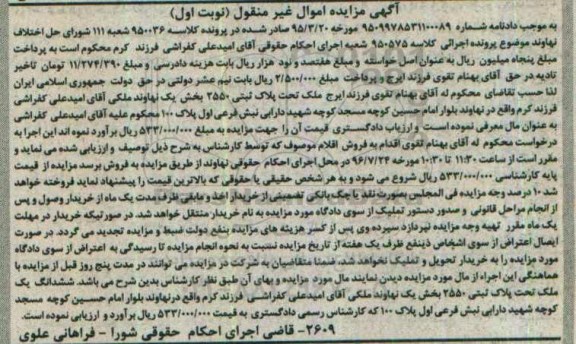 آگهی مزایده اموال غیر منقول (نوبت اول)
به موجب دادنامه شماره ۹۵۰۹۹۷۸۵۳۱۱۰۰۰۸۹ مورخه ۹۵/۳/۲۰ صادر شده در پرونده کلاسه ۹۵۰۰۳۶ شعبه ۱۱۱ شورای حل اختلاف
نهاوند موضوع پرونده اجرائی کلاسه ۹۵۰۵۷۵ شعبه اجرای احکام حقوقی آقای امیدعلی کفراشی فرزند کرم محکوم است به پرداخت
مبلغ پنجاه میلیون ریال به عنوان اصل خواسته و مبلغ هفتصد و نود هزار ریال بابت هزینه دادرسی و مبلغ ۱۱/۲۷۴/۲۹۰ تومان تاخیر
تادیه در حق آقای بهنام تقوی فرزند ایرج و پرداخت مبلغ ۲/۵۰۰/۰۰۰ ریال بابت نیم عشر دولتی در حق دولت جمهوری اسلامی ایران
لذا حسب تقاضای محکوم له آقای بهنام تقوی فرزند ایرج ملک تحت پلاک ثبتی ۲۵۵۰ بخش یک نهاوند ملکی آقای امیدعلی کفراشی
فرزند کرم واقع در نهاوند بلوار امام حسین کوچه مسجد کوچه شهید دارابی نبش فرعی اول پلاک ۱۰۰ محکوم علیه آقای امیدعلی کفراشی
به عنوان مال معرفی نموده است و ارزیاب دادگستری قیمت آن را جهت مزایده به مبلغ ۵۳۳/۰۰۰/۰۰۰ ریال برآورد نموده اند این اجرا به
درخواست محکوم له آقای بهنام تقوی اقدام به فروش اقلام موصوف که توسط کارشناس به شرح ذیل توصیف و ارزیابی شده می نماید و
مقرر است از ساعت ۱۱:۳۰ تا ۱۰:۳۰ مورخه ۹۶/۷/۲۴ در محل اجرای احکام حقوقی نهاوند از طریق مزایده به فروش برسد مزایده از قیمت
پایه کارشناسی ۵۳۳/۰۰۰/۰۰۰ ریال شروع می شود و به هر شخص حقیقی یا حقوقی که بالاترین قیمت را پیشنهاد نماید فروخته خواهد
شد ۱۰ درصد وجه مزایده فی المجلس بصورت نقد یا چک بانکی تضمینی از خریدار اخذ و مابقی ظرف مدت یک ماه از خریدار وصول و پس
از انجام مراحل قانونی و صدور دستور تملیک از سوی دادگاه مورد مزایده به نام خریدار منتقل خواهد شد. در صورتیکه خریدار در مهلت
یک ماه مقرر تهیه وجه مزایده نپردازد سپرده وی پس از کسر هزینه های مزایده بنفع دولت ضبط و مزایده تجدید می گردد. در صورت
ایصال اعتراض از سوی اشخاص ذینفع ظرف یک هفته از تاریخ مزایده نسبت به نحوه انجام مزایده تا رسیدگی به اعتراض از سوی دادگاه
مورد مزایده را به خریدار تحویل و تملیک نخواهد شد. ضمنا متقاضیان به شرکت در مزایده می توانند در مدت پنج روز قبل از مزایده با
هماهنگی این اجراء از مال مورد مزایده دیدن نمایند مال مورد مزایده و بهای آن طبق نظر کارشناس بدین شرح می باشد. ششدانگ یک
ملک تحت پلاک ثبتی ۲۵۵۰ بخش یک نهاوند ملکی آقای امیدعلی کفراشی فرزند کرم واقع درنهاوند بلوار امام حسسین کوچه مسجد
کوچه شهید دارابی نبش فرعی اول پلاک ۱۰۰ که کارشناس رسمی دادگستری به قیمت ۵۳۳/۰۰۰/۰۰۰ ریال برآورد و ارزیابی نموده است.
۲۶۰۹- قاضی اجرای احکام حقوقی شورا - فراهانی علوی